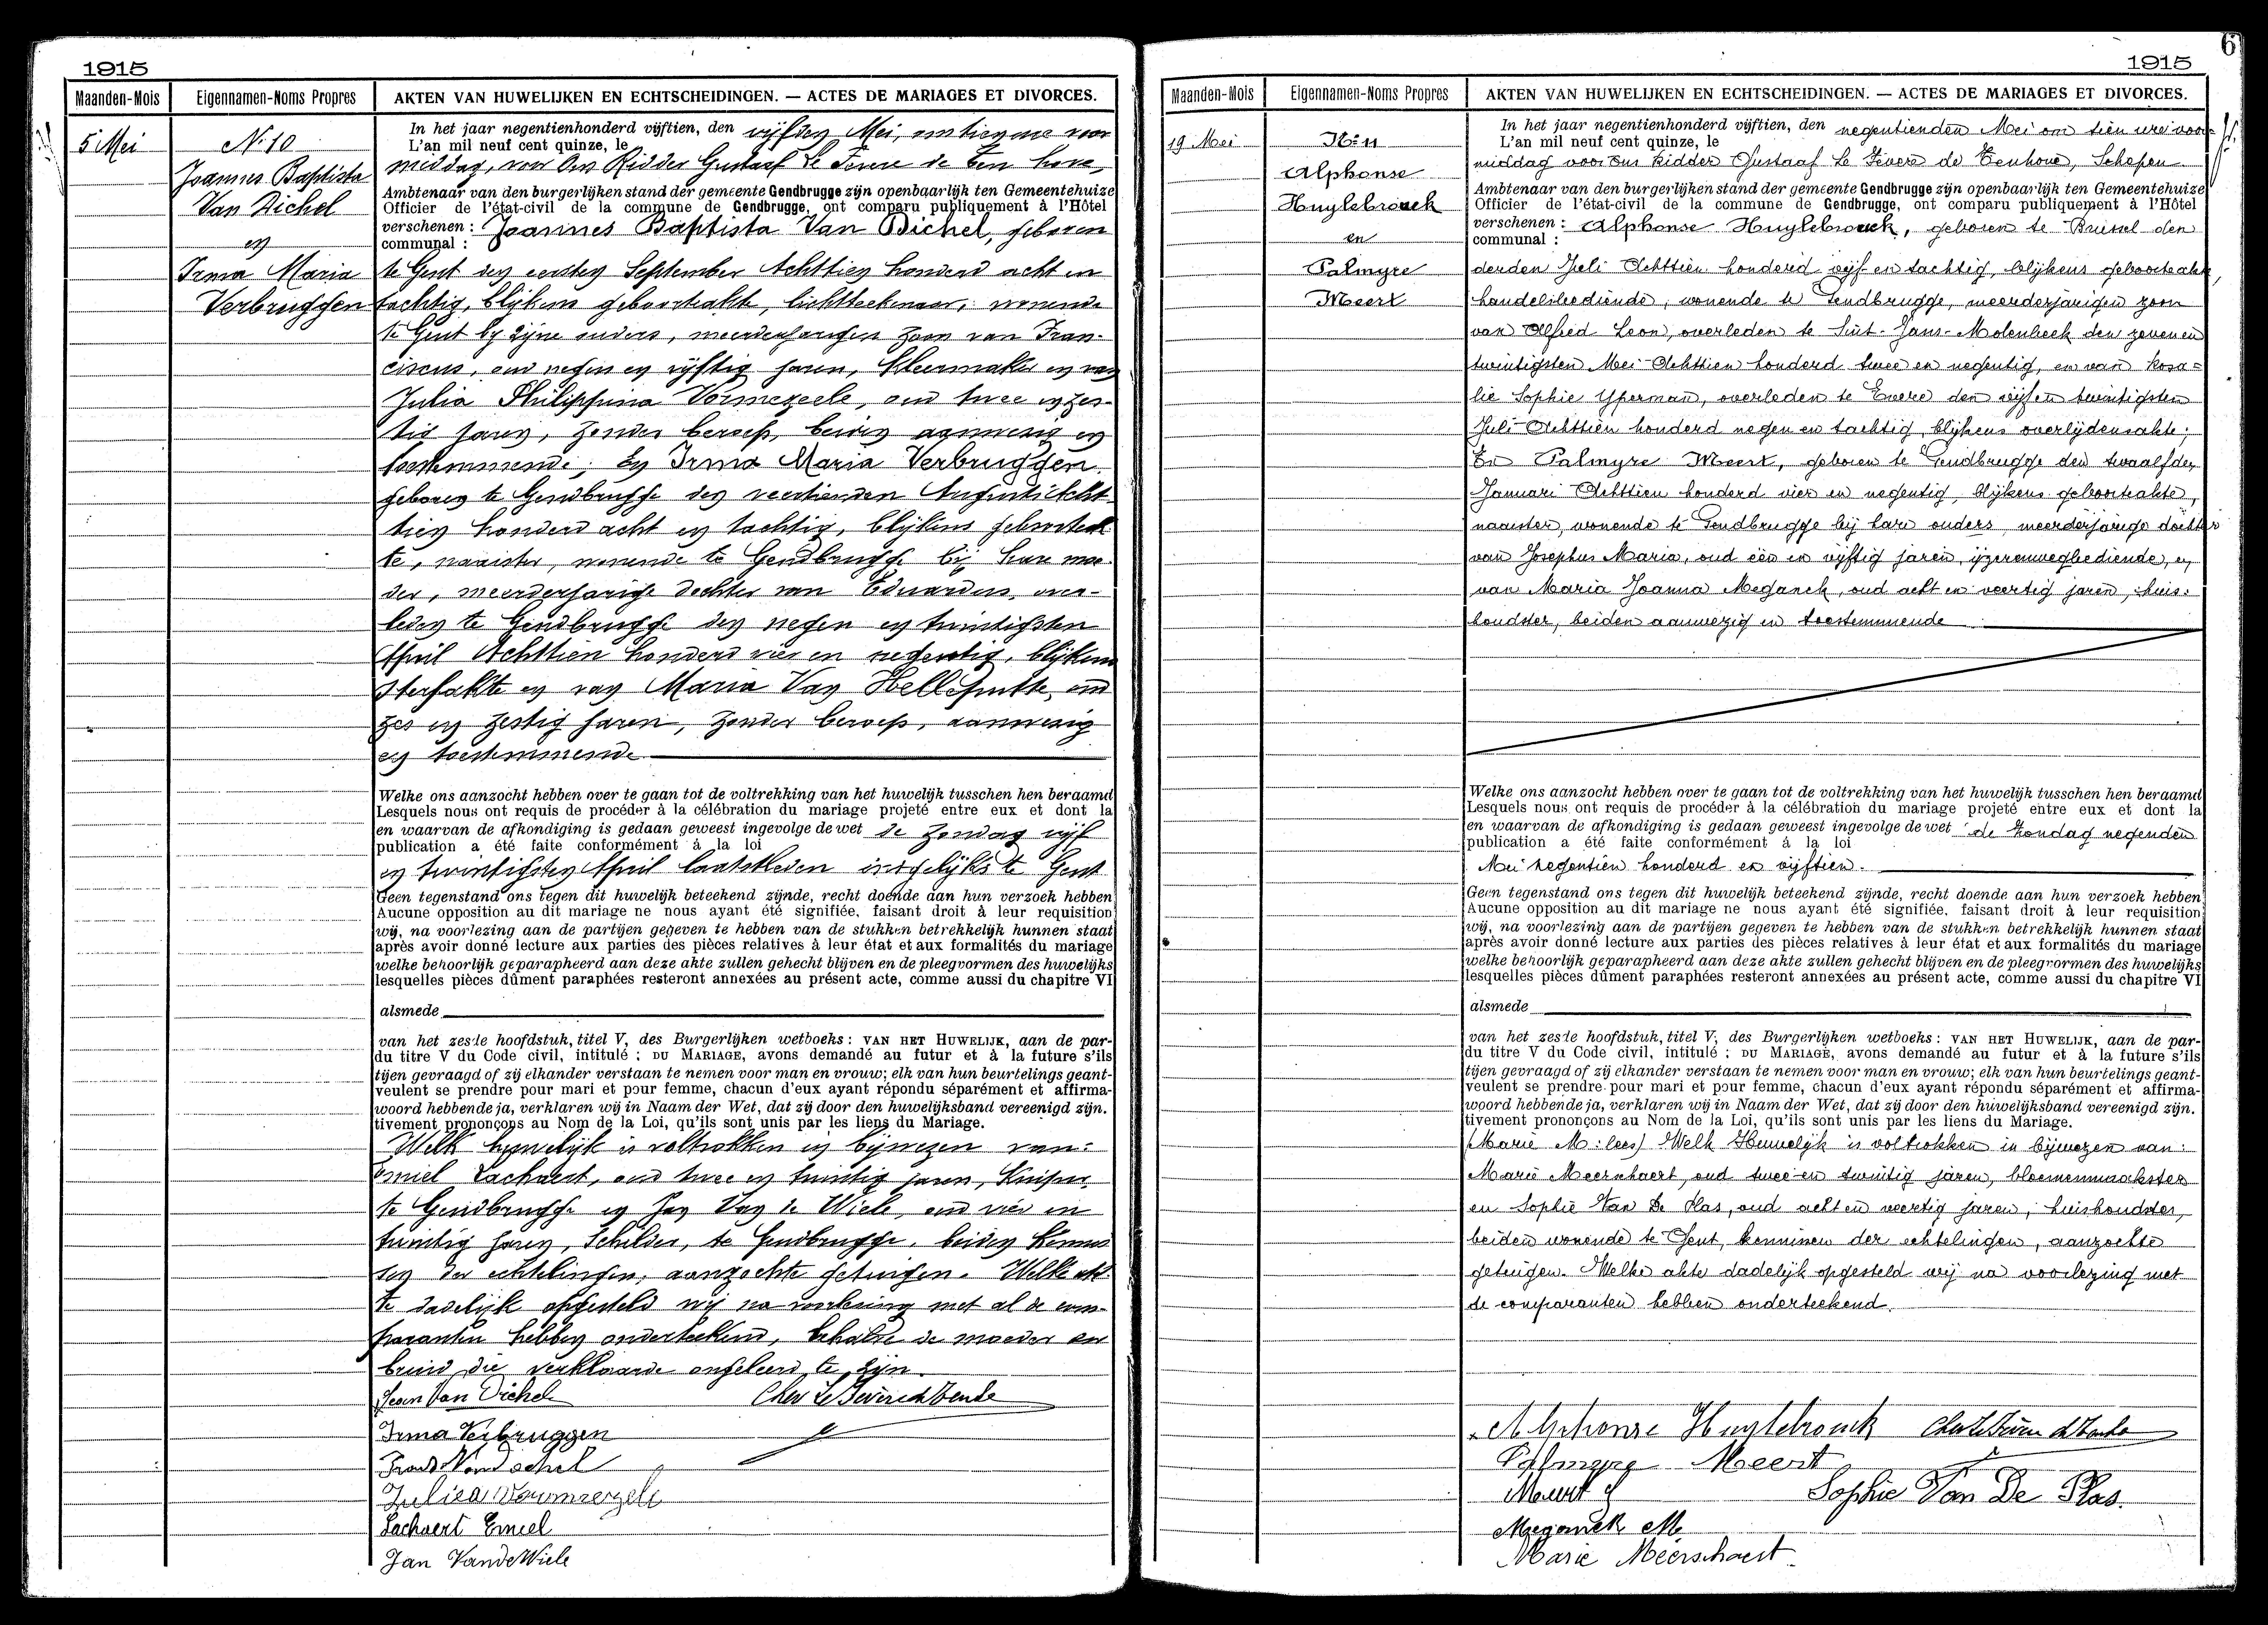 1915
Maanden-Mois
Eigennamen-Noms Propres
AKTEN VAN HUWELIJKEN EN ECHTSCHEIDINGEN. — ACTES DE MARIAGES ET DIVORCES.
5 Mei
No 10
Joannes Baptista
Van Dichel
en
Irma Maria
Verbruggen
In het jaar negentienhonderd vijftien, den vijfden Mei, om tien ure voor
L'an mil neuf cent quinze, le
middag, voor Ons Ridder Gustaaf Le Fevere de Ten hove,
Ambtenaar van den burgerlijken stand der gemeente Gendbrugge zijn openbaarlijk ten Gemeentehuize
Officier de l'état-civil de la commune de Gendbrugge, ont comparu publiquement à l'Hôtel
verschenen : Joannes Baptista Van Dichel, geboren
communal :
te Gent den eersten September Achttien honderd acht en
tachtig, blijkens geboorteakte, lichtteekenaar, wonende
te Gent bij zijne ouders, meerderjarigen zoon van Fran-
ciscus, oud negen en vijftig jaren, kleermaker en van
Julia Philippina Vormezeele, oud twee en zes-
tig jaren, zonder beroep, beiden aanwezig en
toestemmende; En Irma Maria Verbruggen,
geboren te Gendbrugge den veertienden Augusti Acht-
tien honderd acht en tachtig, blijkens geboorteak-
te, naaister, wonende te Gendbrugge bij hare moe-
der, meerderjarige dochter van Eduardus, over-
leden te Gendbrugge den negen en twintigsten
April Achttien honderd vier en negentig, blijkens
sterfakte en van Maria Van Helleputte, oud
zes en zestig jaren, zonder beroep, aanwezig
en toestemmende
Welke ons aanzocht hebben over te gaan tot de voltrekking van het huwelijk tusschen hen beraamd
Lesquels nous ont requis de procéder à la célébration du mariage projeté entre eux et dont la
en waarvan de afkondiging is gedaan geweest ingevolge de wet de Zondag vijf
publication a été faite conformément à la loi
en twintigsten April laatstleden insgelijks te Gent
Geen tegenstand ons tegen dit huwelijk beteekend zijnde, recht doende aan hun verzoek hebben
Aucune opposition au dit mariage ne nous ayant été signifiée, faisant droit à leur requisition
wij, na voorlezing aan de partijen gegeven te hebben van de stukken betrekkelijk hunnen staat
après avoir donné lecture aux parties des pièces relatives à leur état et aux formalités du mariage
welke behoorlijk geparapheerd aan deze akte zullen gehecht blijven en de pleegvormen des huwelijks
lesquelles pièces dûment paraphées resteront annexées au présent acte, comme aussi du chapitre VI
alsmede
van het zesde hoofdstuk, titel V, des Burgerlijken wetboeks : VAN HET HUWELIJK, aan de par-
du titre V du Code civil, intitulé : DU MARIAGE, avons demandé au futur et à la future s'ils
tijen gevraagd of zij elkander verstaan te nemen voor man en vrouw; elk van hun beurtelings geant-
veulent se prendre pour mari et pour femme, chacun d'eux ayant répondu séparément et affirma-
woord hebbende ja, verklaren wij in Naam der Wet, dat zij door den huwelijksband vereenigd zijn.
tivement prononçons au Nom de la Loi, qu'ils sont unis par les liens du Mariage.
Welk huwelijk is voltrokken in bijwezen van:
Emiel Lachaert, oud twee en twintig jaren, Kuiper
te Gendbrugge en Jan Van de Wiele, oud vier en
twintig jaren, Schilder, te Gendbrugge, beiden kennis-
sen der echtelingen, aanzochte getuigen. Welke ak-
te dadelijk opgesteld wij na voorlezing met al de com-
paranten hebben onderteekend, behalve de moeder der
bruid die verklaarde ongeleerd te zijn.
Jean Van Dichel
Irma Verbruggen
Julien Vormezeele
Lachaert Emiel
Jan VandeWiele
6
1915
Maanden-Mois
Eigennamen-Noms Propres
AKTEN VAN HUWELIJKEN EN ECHTSCHEIDINGEN. — ACTES DE MARIAGES ET DIVORCES.
19 Mei
No 11
Alphonse
Huylebrouck
en
Palmyre
Meert
In het jaar negentienhonderd vijftien, den negentienden Mei om tien ure voor-
L'an mil neuf cent quinze, le
middag voor Ons Ridder Gustaaf Le Fèvere de Tenhove, Schepen
Ambtenaar van den burgerlijken stand der gemeente Gendbrugge zijn openbaarlijk ten Gemeentehuize
Officier de l'état-civil de la commune de Gendbrugge, ont comparu publiquement à l'Hôtel
verschenen : Alphonse Huylebrouck, geboren te Brussel den
communal :
derden Juli Achttien honderd vijf en tachtig, blijkens geboorteakte,
handelsbediende, wonende te Gendbrugge, meerderjarigen zoon
van Alfred Leon, overleden te Sint-Jans-Molenbeek den zeven en
twintigsten Mei Achttien honderd twee en negentig, en van Rosa=
lie Sophie Yperman, overleden te Evere den vijf en twintigsten
Juli Achttien honderd negen en tachtig, blijkens overlijdensakte;
En Palmyre Meert, geboren te Gendbrugge den twaalfden
Januari Achttien honderd vier en negentig, blijkens geboorteakte,
naaister, wonende te Gendbrugge bij hare ouders, meerderjarige dochter
van Josephus Maria, oud één en vijftig jaren, ijzerenwegbediende, en
van Maria Joanna Meganck, oud acht en veertig jaren, huis:
houdster, beiden aanwezig en toestemmende
Welke ons aanzocht hebben over te gaan tot de voltrekking van het huwelijk tusschen hen beraamd
Lesquels nous ont requis de procéder à la célébration du mariage projeté entre eux et dont la
en waarvan de afkondiging is gedaan geweest ingevolge de wet de Zondag negenden
publication a été faite conformément à la loi
Mei negentien honderd en vijftien.
Geen tegenstand ons tegen dit huwelijk beteekend zijnde, recht doende aan hun verzoek hebben
Aucune opposition au dit mariage ne nous ayant été signifiée, faisant droit à leur requisition
wij, na voorlezing aan de partijen gegeven te hebben van de stukken betrekkelijk hunnen staat
après avoir donné lecture aux parties des pièces relatives à leur état et aux formalités du mariage
welke behoorlijk geparapheerd aan deze akte zullen gehecht blijven en de pleegvormen des huwelijks
lesquelles pièces dûment paraphées resteront annexées au présent acte, comme aussi du chapitre VI
alsmede
van het zesde hoofdstuk, titel V, des Burgerlijken wetboeks : VAN HET HUWELIJK, aan de par-
du titre V du Code civil, intitulé : DU MARIAGE, avons demandé au futur et à la future s'ils
tijen gevraagd of zij elkander verstaan te nemen voor man en vrouw; elk van hun beurtelings geant-
veulent se prendre pour mari et pour femme, chacun d'eux ayant répondu séparément et affirma-
woord hebbende ja, verklaren wij in Naam der Wet, dat zij door den huwelijksband vereenigd zijn.
tivement prononçons au Nom de la Loi, qu'ils sont unis par les liens du Mariage.
(Marie M: lees) Welk Huwelijk is voltrokken in bijwezen van:
Marie Meerschaert, oud twee en twintig jaren, bloemenmaakster
en Sophie Van De Plas, oud acht en veertig jaren, huishoudster,
beiden wonende te Gent, kennissen der echtelingen, aanzochte
getuigen. Welke akte dadelijk opgesteld wij na voorlezing met
de comparanten hebben onderteekend.
Alphonse Huylebrouck
Palmyre Meert
Meert J
Sophie Van De Plas.
Meganck M
Marie Meerschaert